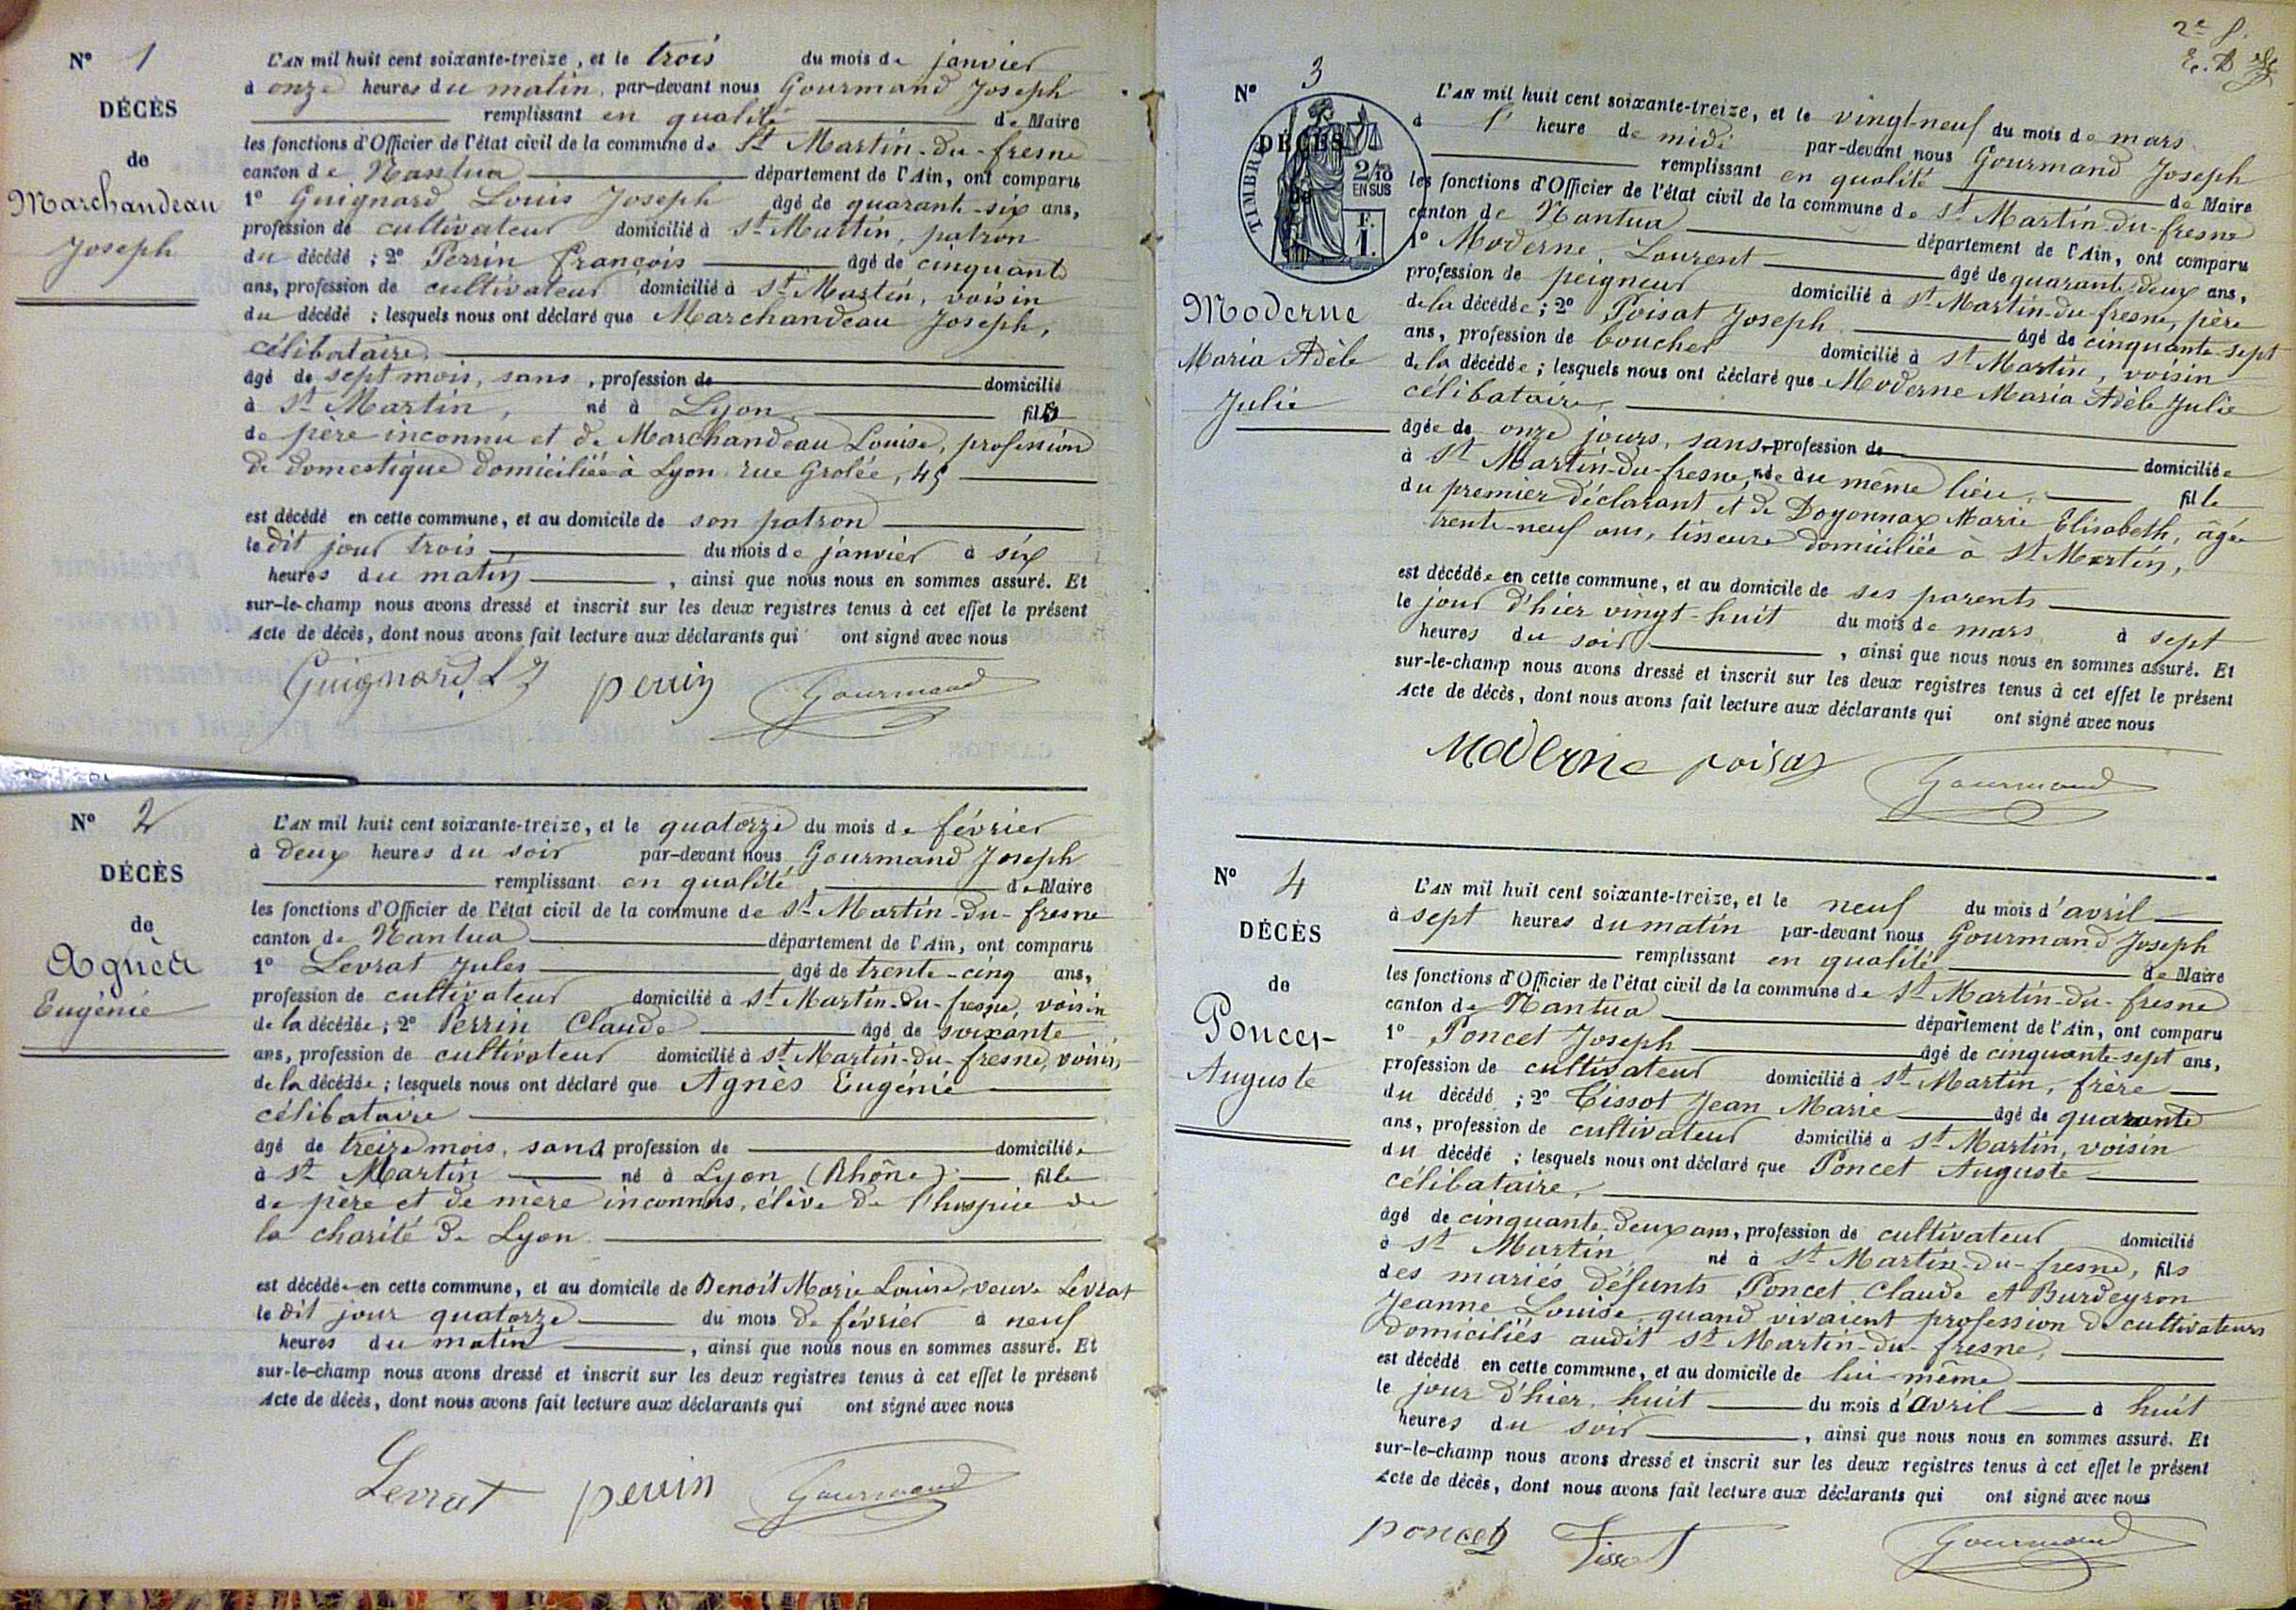 N° 1
DÉCÈS
de
Marchandeau
Joseph
L'AN mil huit cent soixante-treize, et le trois du mois de janvier
à onze heures du matin, par-devant nous Gourmand Joseph
remplissant en qualité de Maire
les fonctions d'Officier de l'état civil de la commune de St Martin-du-fresne
canton de Nantua département de l'Ain, ont comparu
1° Guignard Louis Joseph âgé de quarant-six ans,
profession de cultivateur domicilié à St Martin, patron
du décédé ; 2° Perrin françois âgé de cinquante
ans, profession de cultivateur domicilié à St Martin, voisin
du décédé ; lesquels nous ont déclaré que Marchandeau Joseph,
célibataire,
âgé de sept mois, sans, profession de domicilié
à St Martin, né à Lyon, fils
de père inconnu et de Marchandeau Louise, profession
de domestique domiciliée à Lyon rue Grolée, 45
est décédé en cette commune, et au domicile de son patron
le dit jour trois du mois de janvier à six
heures du matin, ainsi que nous nous en sommes assuré. Et
sur-le-champ nous avons dressé et inscrit sur les deux registres tenus à cet effet le présent
Acte de décès, dont nous avons fait lecture aux déclarants qui ont signé avec nous
Guignard L J perrin Gourmand
N° 2
DÉCÈS
de
Agnès
Eugénie
L'AN mil huit cent soixante-treize, et le quatorze du mois de février
à deux heures du soir par-devant nous Gourmand Joseph
remplissant en qualité, de Maire
les fonctions d'Officier de l'état civil de la commune de St Martin-du-fresne
canton de Nantua département de l'Ain, ont comparu
1° Levrat Jules âgé de trente-cinq ans,
profession de cultivateur domicilié à St Martin-du-fresne, voisin
de la décédée ; 2° Perrin Claude âgé de soixante
ans, profession de cultivateur domicilié à St Martin-du-fresne, voisin
de la décédée ; lesquels nous ont déclaré que Agnès Eugénie
célibataire
âgé de treize mois, sans profession de domiciliée
à St Martin né à Lyon (Rhône) fille
de père et de mère inconnus, élève de l'hospice de
la charité de Lyon.
est décédée en cette commune, et au domicile de Benoit Marie Louise, veuve Levrat
le dit jour quatorze du mois de février à neuf
heures du matin, ainsi que nous nous en sommes assuré. Et
sur-le-champ nous avons dressé et inscrit sur les deux registres tenus à cet effet le présent
Acte de décès, dont nous avons fait lecture aux déclarants qui ont signé avec nous
Levrat perrin Gourmand
2e f.
N° 3
DÉCÈS
de
TIMBRE
2/10
EN SUS
F.
1.
Moderne
Maria Adèle
Julie
L'AN mil huit cent soixante-treize, et le vingt-neuf du mois de mars
à 1' heure de midi par-devant nous Gourmand Joseph
remplissant en qualité de Maire
les fonctions d'Officier de l'état civil de la commune de St Martin-du-fresne
canton de Nantua département de l'Ain, ont comparu
1° Moderne, Laurent âgé de quarante-deux ans,
profession de peigneur domicilié à St Martin-du-fresne, père
de la décédée ; 2° Poisat Joseph âgé de cinquante-sept
ans, profession de boucher domicilié à St Martin, voisin
de la décédée ; lesquels nous ont déclaré que Moderne Maria Adèle Julie
célibataire,
âgée de onze jours, sans profession de domiciliée
à St Martin-du-fresne, née au même lieu, fille
du premier déclarant et de Doyonnax Marie Elisabeth, âgée
trente-neuf ans, tisseuse domiciliée à St Martin,
est décédée en cette commune, et au domicile de ses parents
le jour d'hier vingt-huit du mois de mars à sept
heures du soir, ainsi que nous nous en sommes assuré. Et
sur-le-champ nous avons dressé et inscrit sur les deux registres tenus à cet effet le présent
Acte de décès, dont nous avons fait lecture aux déclarants qui ont signé avec nous
Moderne poisat Gourmand
N° 4
DÉCÈS
de
Poncet
Auguste
L'AN mil huit cent soixante-treize, et le neuf du mois d'avril
à sept heures du matin par-devant nous Gourmand Joseph
remplissant en qualité de Maire
les fonctions d'Officier de l'état civil de la commune de St Martin-du-fresne
canton de Nantua département de l'Ain, ont comparu
1° Poncet Joseph âgé de cinquante-sept ans,
profession de cultivateur domicilié à St Martin, frère
du décédé ; 2° Tissot Jean Marie âgé de quarante
ans, profession de cultivateur domicilié à St Martin, voisin
du décédé ; lesquels nous ont déclaré que Poncet Auguste
célibataire,
âgé de cinquante-deux ans, profession de cultivateur domicilié
à St Martin né à St Martin-du-fresne, fils
des mariés défunts Poncet Claude et Burdeyron
Jeanne Louise, quand vivaient profession de cultivateurs
domiciliés audit St Martin-du-fresne,
est décédé en cette commune, et au domicile de lui-même
le jour d'hier, huit du mois d'avril à huit
heures du soir, ainsi que nous nous en sommes assuré. Et
sur-le-champ nous avons dressé et inscrit sur les deux registres tenus à cet effet le présent
Acte de décès, dont nous avons fait lecture aux déclarants qui ont signé avec nous
poncet Tissot Gourmand